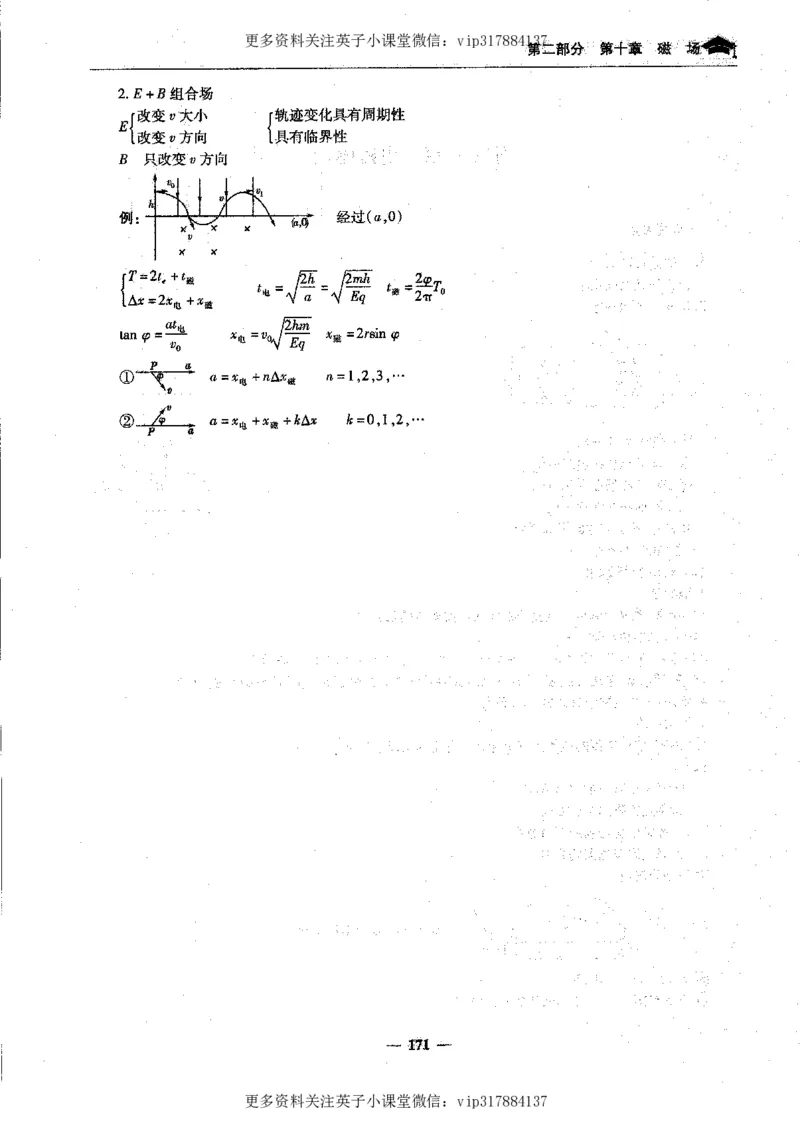 更多资料关注英子小课堂微信：vip317884137
第二部分 第十章 磁 场
2. E + B 组合场
E{改变 v 大小 {轨迹变化具有周期性
改变 v 方向 具有临界性
B 只改变 v 方向
例： h v₀ v v v₁ (a,0) 经过(a,0)
{T = 2tₑ + t磁 t电 = √(2h/a) = √(2mh/Eq) t磁 = (2φ/2π)T₀
Δx = 2x电 + x磁
tan φ = at电/v₀ x电 = v₀√(2hm/Eq) x磁 = 2rsin φ
① P a φ v a = x电 + nΔx磁 n = 1,2,3,⋯
② P a φ v a = x电 + x磁 + kΔx k = 0,1,2,⋯
— 171 —
更多资料关注英子小课堂微信：vip317884137